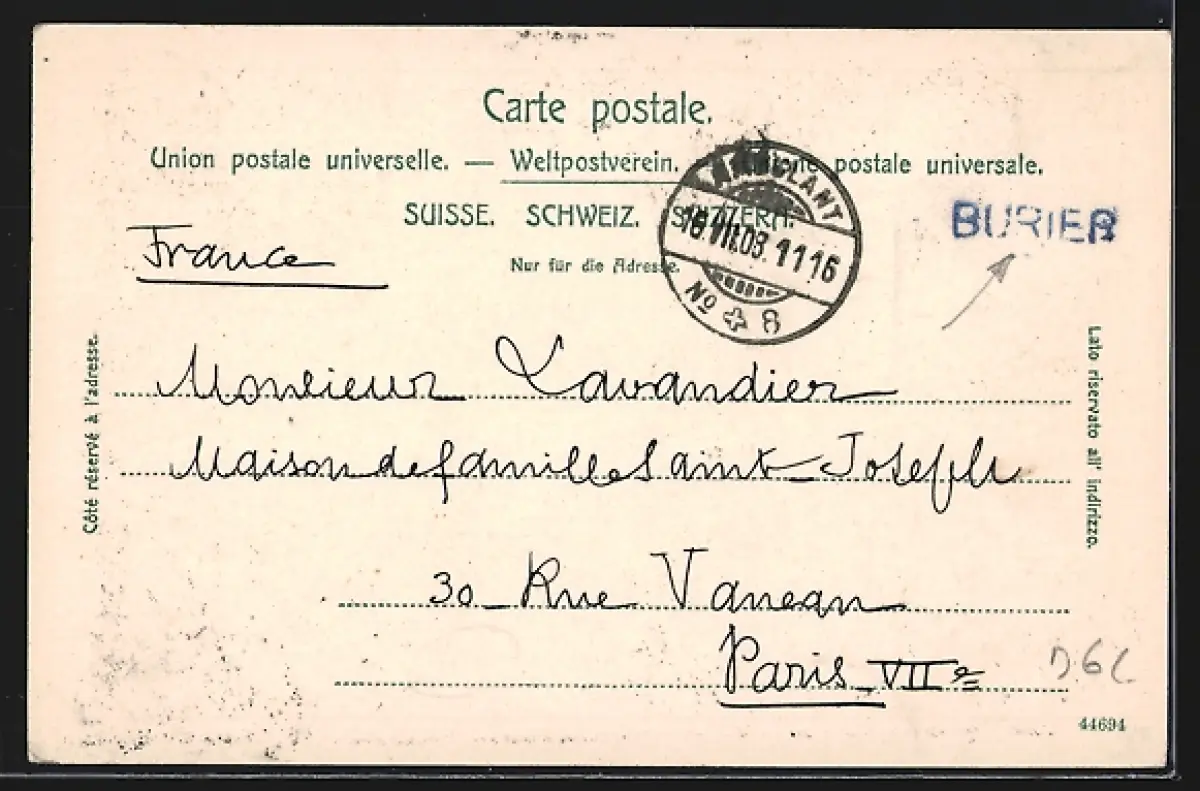 Carte postale.
Union postale universelle. — Weltpostverein. — Unione postale universale.
SUISSE. SCHWEIZ. SVIZZERA.
Nur für die Adresse.
AMBULANT
16.VII.08. 1116
No 8
BURIER
France
Côté réservé à l'adresse.
Lato riservato all' indirizzo.
Monsieur Lavandier
Maison de famille Saint-Joseph
30 Rue Vaneau
Paris VIIe
44694